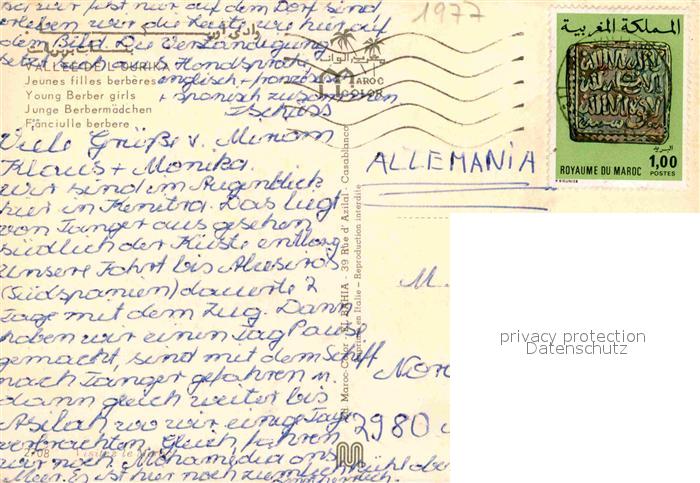 da wir fast nur auf dem Dorf sind
erleben wir die Leute wie hier auf
dem Bild. Die Verständigung
Handsprache
englisch + französisch
+ spanisch zusammen
Tschüss
1977
VALLEE DE L'OURIKA
Jeunes filles berbères
Young Berber girls
Junge Berbermädchen
Fanciulle berbere
MAROC
COLOR
المملكة المغربية
البريد
1,00
ROYAUME DU MAROC POSTES
Viele Grüße v. Miriam
Klaus + Monika.
Wir sind im Augenblick
hier in Kenitra. Das liegt
von Tanger aus gesehen
südlich der Küste entlang
Unsere Fahrt bis Algeciras
(Südspanien) dauerte 2
Tage mit dem Zug. Dann
haben wir einen Tag Pause
gemacht, sind mit dem Schiff
nach Tanger gefahren u.
dann gleich weiter bis
Asilah wo wir einige Tage
verbrachten. Gleich fahren
wir nach Mohamedia ans
Meer. Es ist hier noch ziemlich kühl aber
sonnenreich.
ALLEMANIA
Ed. Maroc-Color - EL BAHIA - 39 Rue d'Azilal - Casablanca
Imprimé en Italie - Reproduction interdite
M.
Nor
2980
2708
privacy protection
Datenschutz